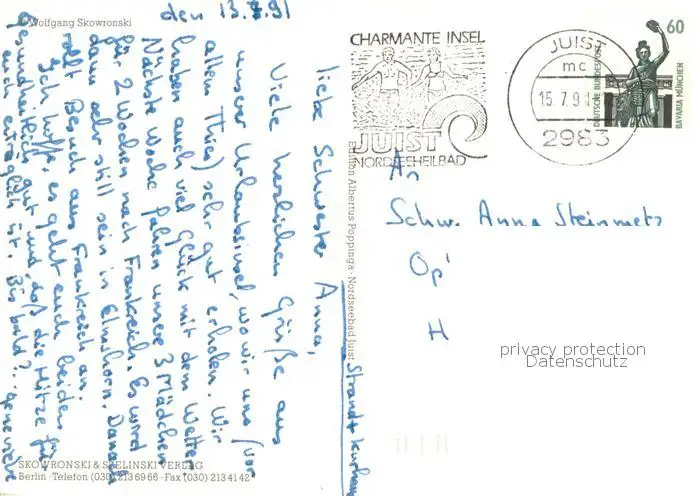 © Wolfgang Skowronski
den 13.7.91
liebe Schwester Anna,
Viele herzlichen Grüße aus
unser Urlaubsinsel, wo wir uns (vor
allem Thies) sehr gut erholen. Wir
haben auch viel Glück mit dem Wetter
Nächste Woche fahren unsere 3 Mädchen
für 2 Wochen nach Frankreich. Es wird
dann sehr still sein in Elmshorn. Danach
rollt Besuch aus Frankreich an.
Ich hoffe, es geht euch beiden
gesundheitlich gut und, daß die Hitze für
euch erträglich ist. Bis bald?
SKOWRONSKI & STELINSKI VERLAG
Berlin · Telefon (030) 213 69 66 · Fax (030) 213 41 42
Edition Albertus Poppinga · Nordseebad Juist
Strandt Kurhaus
CHARMANTE INSEL
JUIST
NORDSEEHEILBAD
JUIST
mc
15.7.91
2983
60
DEUTSCHE BUNDESPOST
BAVARIA MÜNCHEN
An
Schw. Anna Steinmetz
Op'
H
privacy protection
Datenschutz